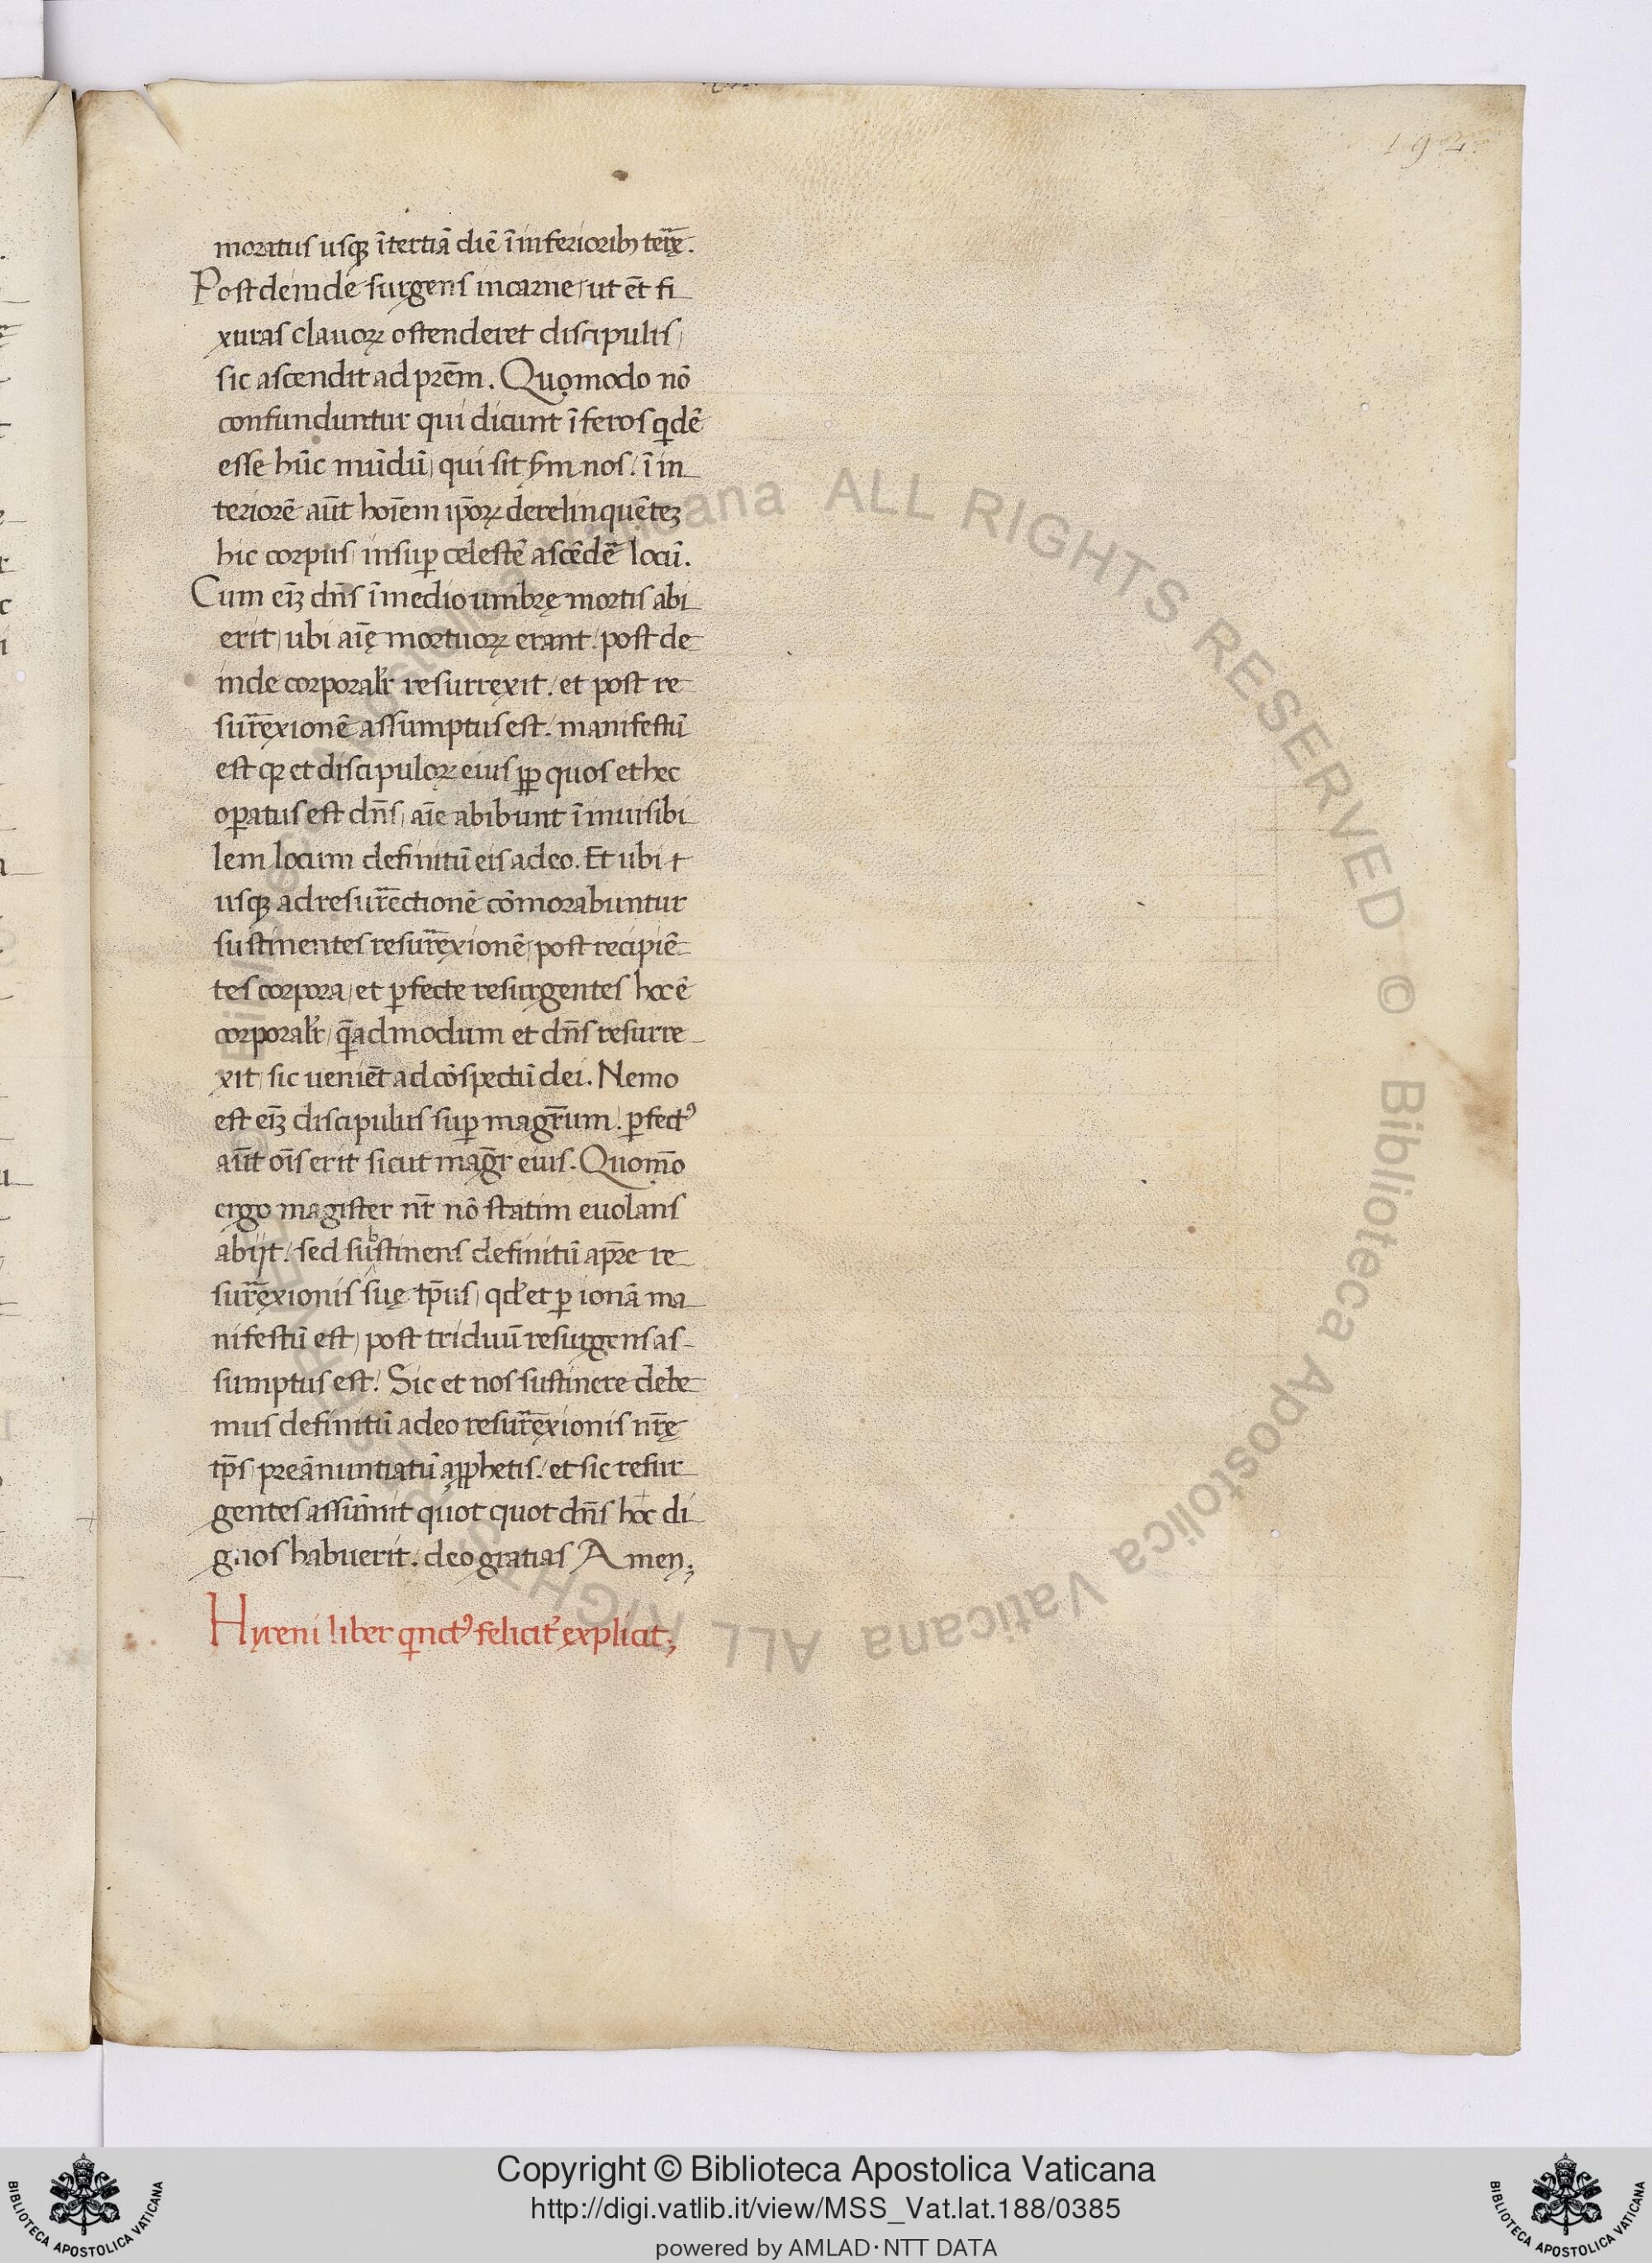 192
moratus usq̨ ītertiā diē ī inferiorib; terr̄ę.
Post deinde surgens incarne, ut et̄ fi
xuras clauoꝝ ostenderet discipulis,
sic ascendit ad prēm. Quomodo nō
confunduntur qui dicunt īferos qdē
esse hūc mūdū, qui sit s̄m nos. ī in
teriorē aūt hoīem ip̄oꝝ derelinquētez
hic corpus, insuꝑ celestē ascēdē locū.
Cum eīȝ dn̄s ī medio umbrę mortis abi
erit, ubi aīę mortuoꝝ erant. post de
inde corporalr̄ resurrexit. et post re
surr̄exionē assumptus est. manifestū
est qꝫ et discipuloꝝ eius ꝓp quos et hec
oꝑatus est dn̄s, aīe abibunt ī inuisibi
lem locum definitū eis adeo. Et ubi t
usq̨ ad resurr̄ectionē cōmorabuntur
sustinentes resurr̄exionē, post recipiē
tes corpora, et ꝑfecte resurgentes hoc ē
corporalr̄, q̄admodum et dn̄s resurre
xit, sic ueniēt ad cōspectū dei. Nemo
est eīȝ discipulus suꝑ magr̄um. ꝑfectꝰ
aūt oīs erit sicut magr̄ eius. Quom̄o
ergo magister nr̄ nō statim euolans
abijt. sed substinens definitū apr̄e re
surr̄exionis suę tp̄us, qd̓ et ꝑ ionā ma
nifestū est, post triduū resurgens as
sumptus est. Sic et nos sustinere debe
mus definitū adeo resurr̄exionis nr̄ę
tp̄s, preānuntiatū aꝓphetis. et sic resur
gentes assūmit quot quot dn̄s hoc di
gnos habuerit. deo gratias Amen;
Hyreni liber qnctꝰ felicit̓ explicit;
© Biblioteca Apostolica Vaticana ALL RIGHTS RESERVED © Biblioteca Apostolica Vaticana ALL RIGHTS RESERVED
Copyright © Biblioteca Apostolica Vaticana
http://digi.vatlib.it/view/MSS_Vat.lat.188/0385
powered by AMLAD·NTT DATA
BIBLIOTECA APOSTOLICA VATICANA
BIBLIOTECA APOSTOLICA VATICANA